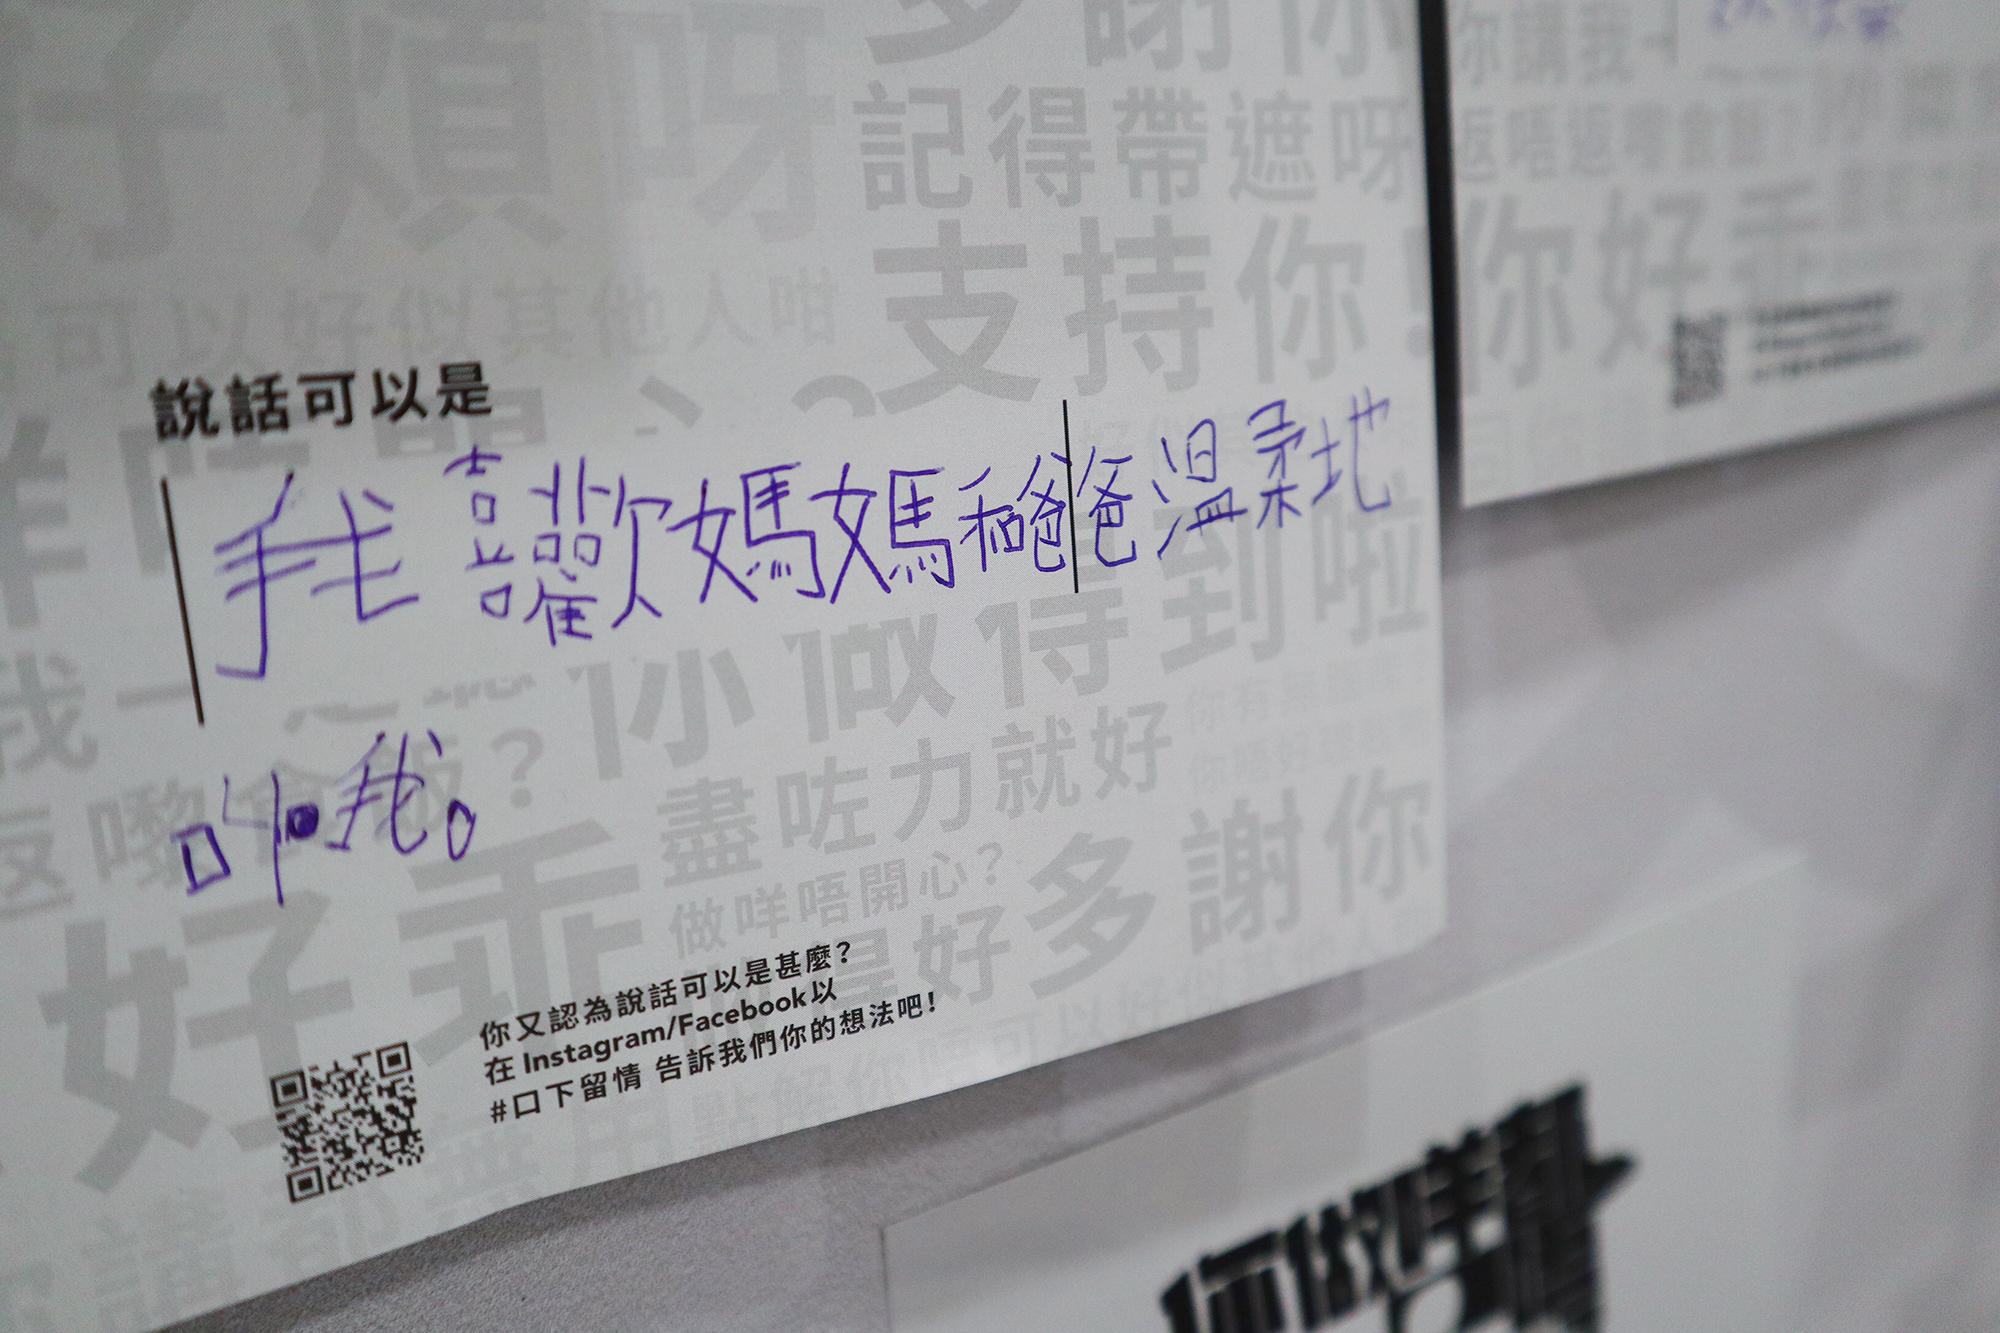 好煩呀
多謝你
記得帶遮呀
支持你!
可以好似其他人咁
說話可以是
我喜歡媽媽和爸爸溫柔地
叫我。
你做得到啦
我一
返嚟食飯?
盡咗力就好
做咩唔開心?
好乖
好多謝你
你又認為說話可以是甚麼?
在 Instagram/Facebook以
#口下留情 告訴我們你的想法吧!
你講我
返唔返嚟食飯?
你好乖
你做咩都